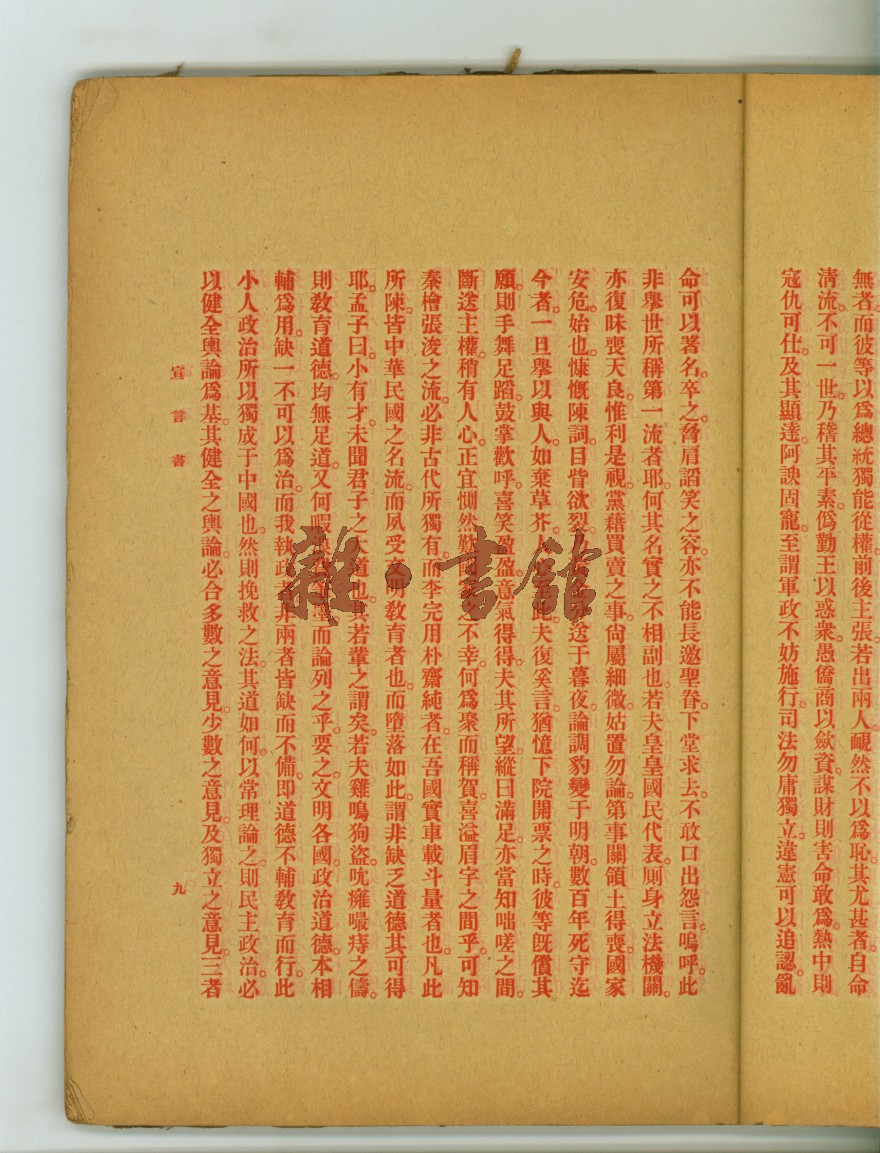 無者。而彼等以爲總統獨能從權。前後主張。若出兩人。靦然不以爲恥。其尤甚者。自命
淸流。不可一世。乃稽其平素。僞勤王以惑衆。愚僑商以歛資。謀財則害命敢爲。熱中則
寇仇可仕。及其顯達。阿諛固寵。至謂軍政不妨施行。司法勿庸獨立。違憲可以追認。亂
命可以署名。卒之脅肩諂笑之容。亦不能長邀聖眷。下堂求去。不敢口出怨言。嗚呼。此
非舉世所稱第一流者耶。何其名實之不相副也。若夫皇皇國民代表。厠身立法機關。
亦復昧喪天良。惟利是視。黨藉買賣之事。尙屬細微。姑置勿論。第事關領土得喪。國家
安危。始也慷慨陳詞。目眥欲裂。送于暮夜。論調豹變于明朝。數百年死守迄
今者。一旦舉以與人。如棄草芥。人夫復奚言。猶憶下院開票之時。彼等旣償其
願。則手舞足蹈。鼓掌歡呼。喜笑盈盈。意氣得得。夫其所望。縱曰滿足。亦當知咄嗟之間。
斷送主權。稍有人心。正宜惻然之不幸。何爲聚而稱賀。喜溢眉宇之間乎。可知
秦檜張浚之流。必非古代所獨有。而李完用朴齋純者。在吾國實車載斗量者也。凡此
所陳。皆中華民國之名流。而夙受文明敎育者也。而墮落如此。謂非缺乏道德其可得
耶。孟子曰。小有才。未聞君子之大道也。其若輩之謂矣。若夫雞鳴狗盜。吮癰㗖痔之儔。
則敎育道德。均無足道。又何暇而論列之乎。要之文明各國。政治道德。本相
輔爲用。缺一不可以爲治。而我執政者。非兩者皆缺而不備。即道德不輔敎育而行。此
小人政治所以獨成于中國也。然則挽救之法。其道如何。以常理論之。則民主政治。必
以健全輿論爲基。其健全之輿論。必合多數之意見。少數之意見。及獨立之意見。三者
宣言書
九
雜·書館